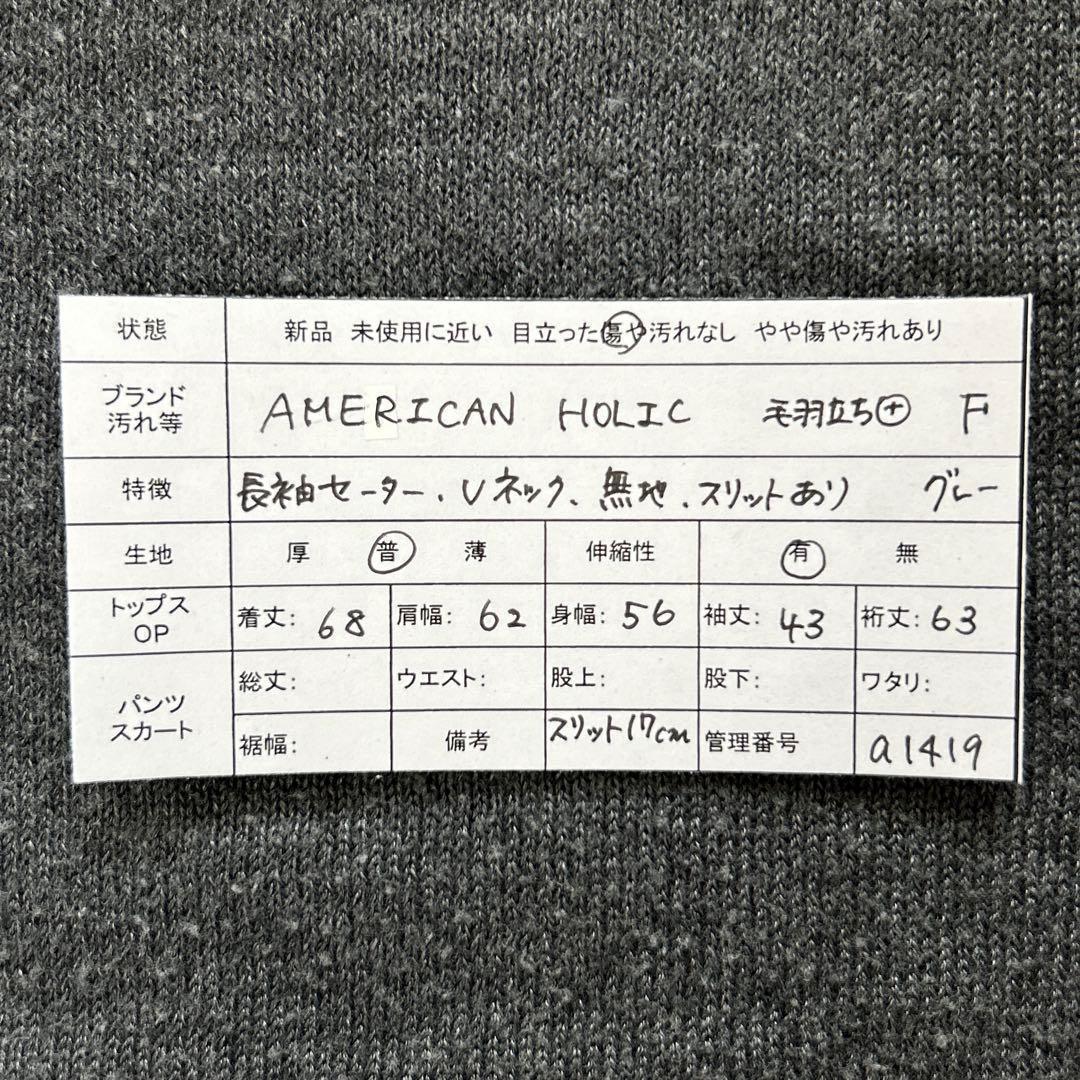 状態 新品 未使用に近い 目立った傷や汚れなし やや傷や汚れあり
ブランド
汚れ等 AMERICAN HOLIC 毛羽立ち⊕ F
特徴 長袖セーター、Vネック、無地、スリットあり グレー
生地 厚 普 薄 伸縮性 有 無
トップス
OP 着丈: 68 肩幅: 62 身幅: 56 袖丈: 43 裄丈: 63
パンツ
スカート 総丈: ウエスト: 股上: 股下: ワタリ:
裾幅: 備考 スリット17cm 管理番号 a1419